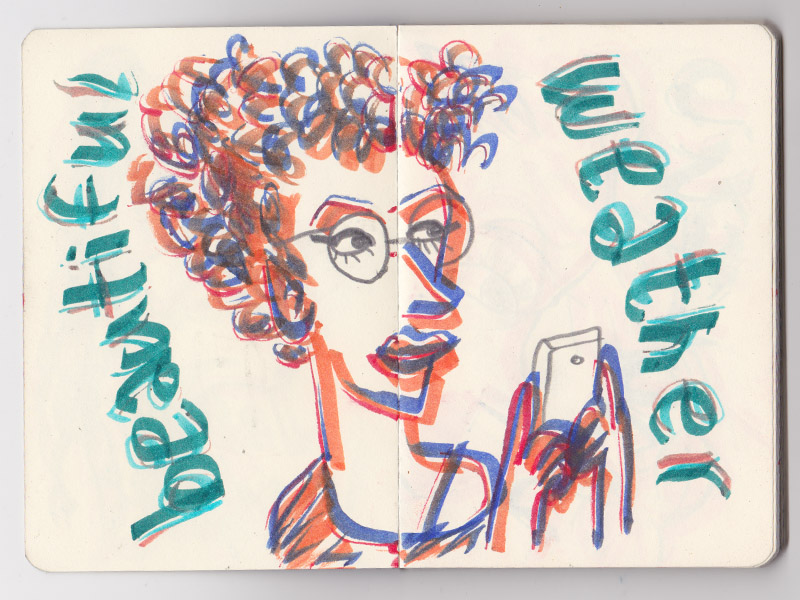 beautiful
weather